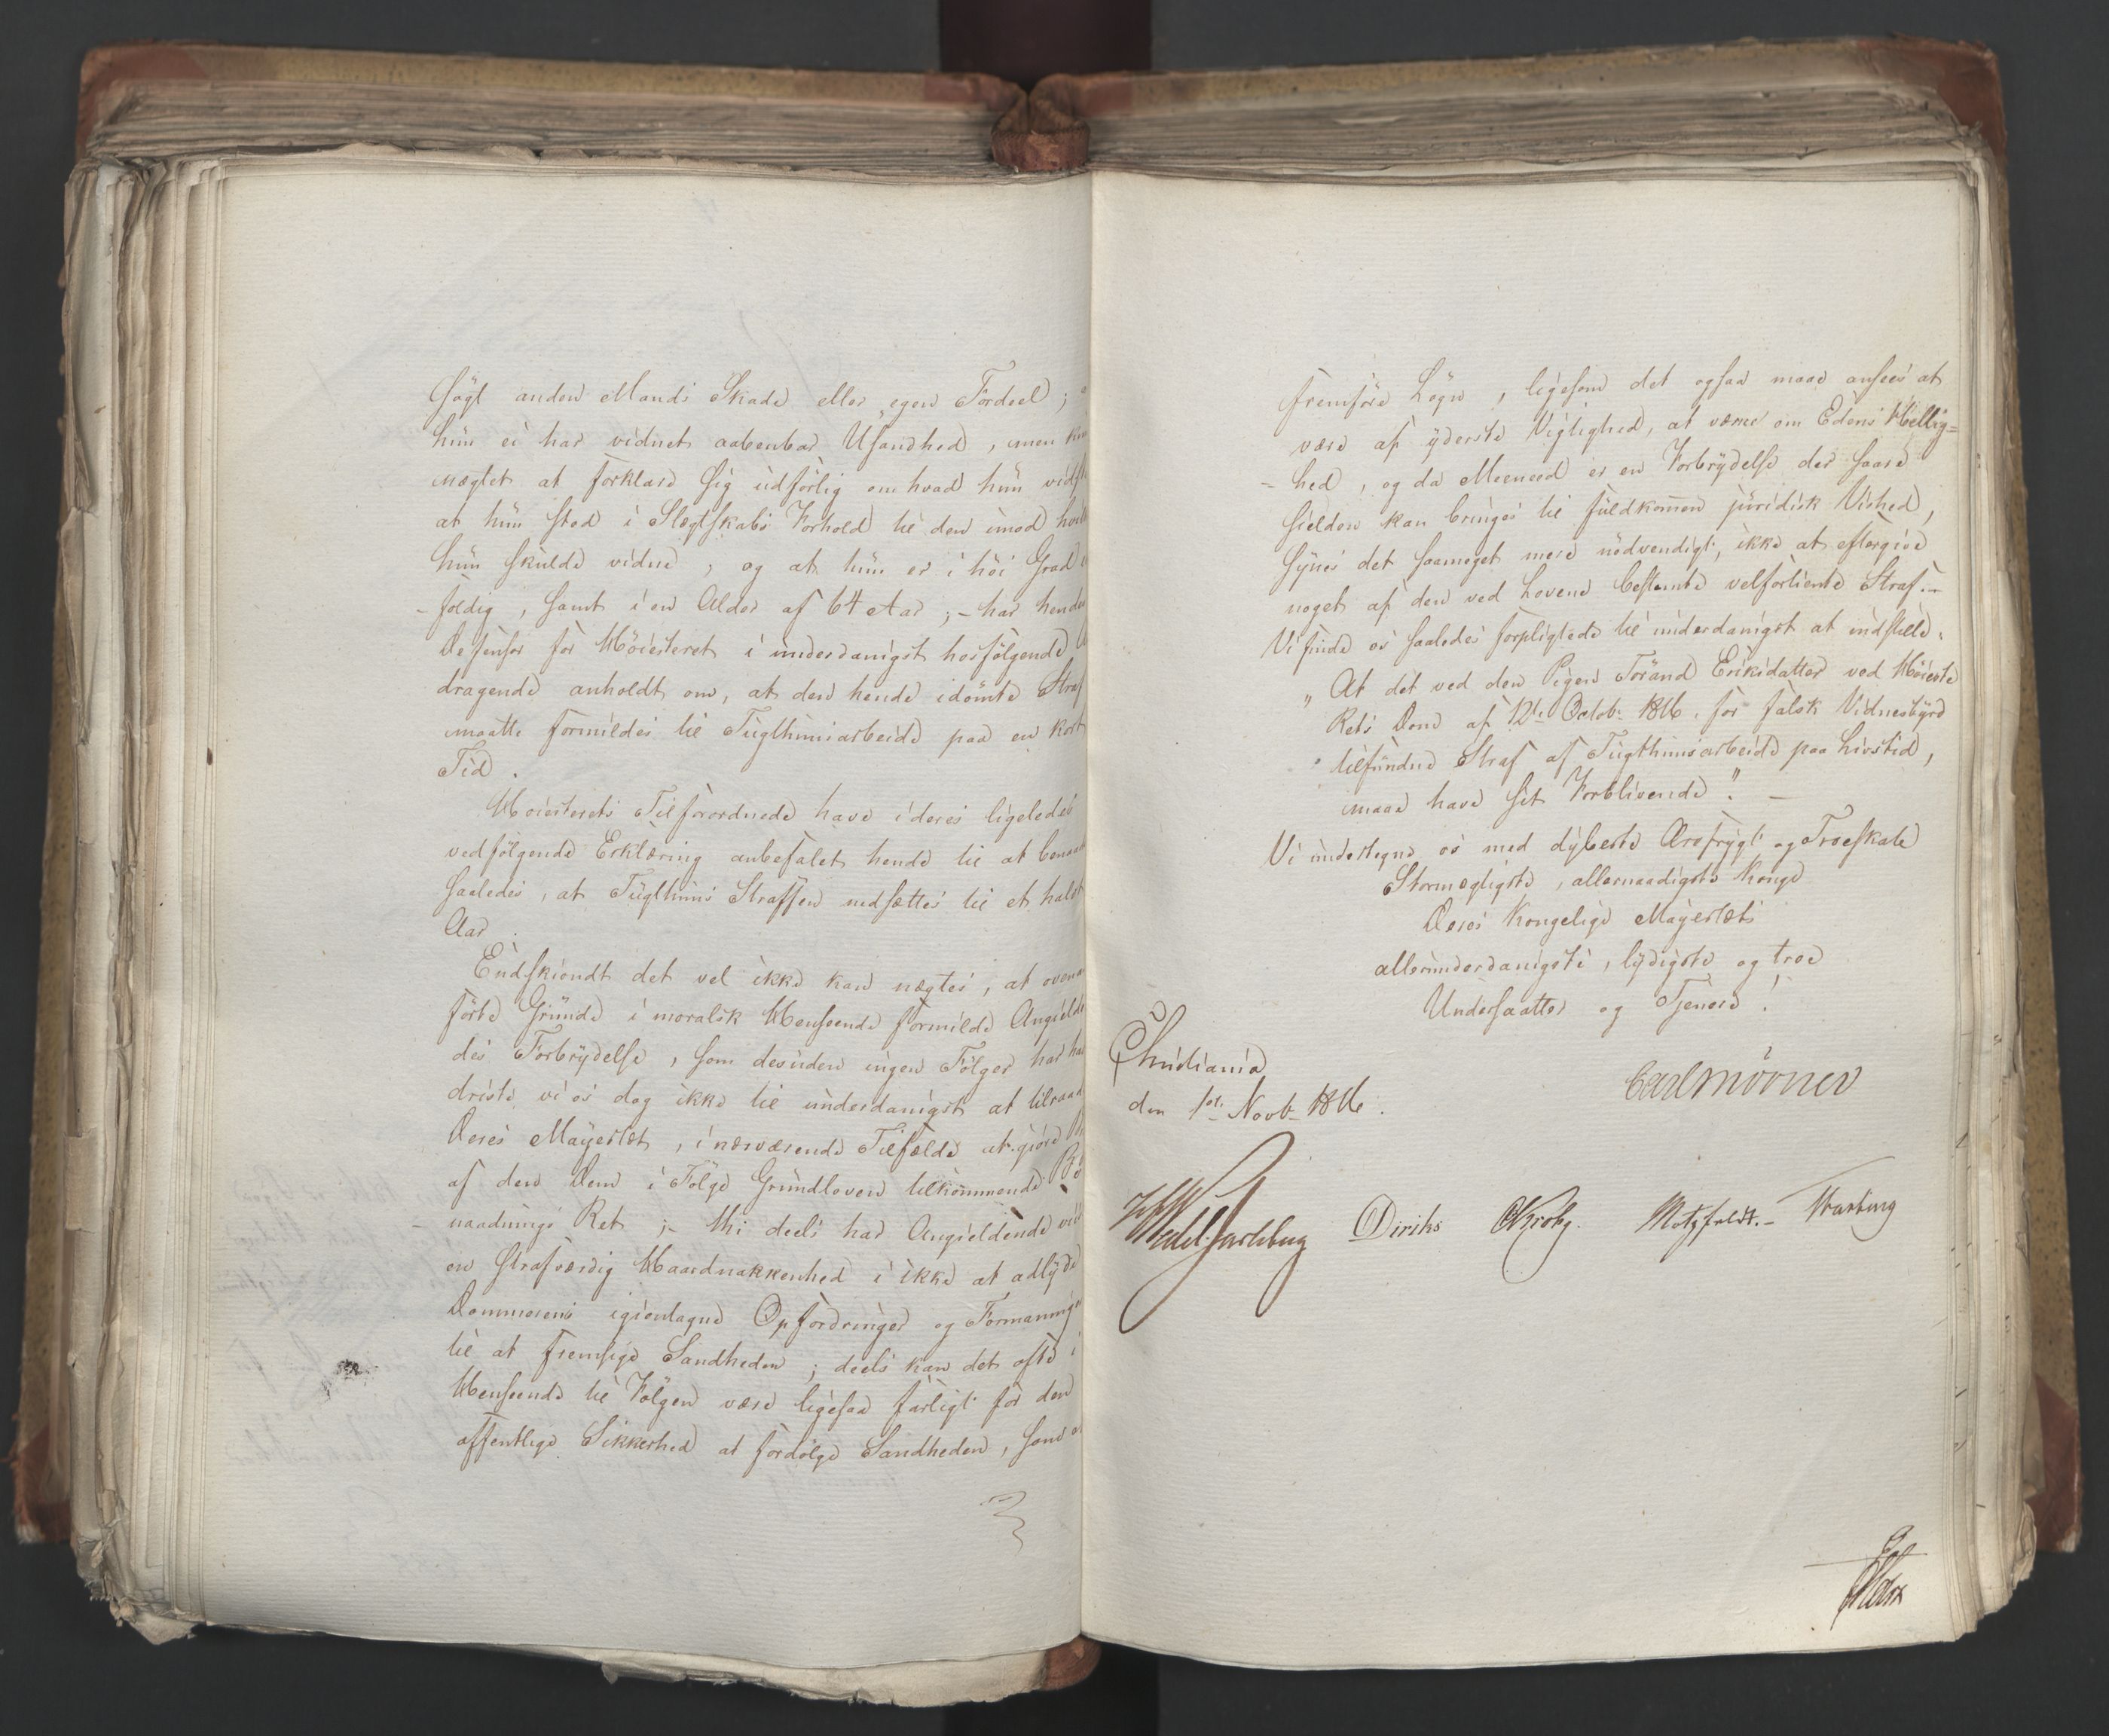 søgt anden Mands Skade eller egen Fordeel;
hun ei har vidnet aabenbar Usandhed, men
nægtet at forklare sig udførlig om hvad hun
at hun stod i Slægtskabs Forhold til den imod
hun skulde vidne, og at hun er i høi Grad
foldig, samt i en Alder af 64 Aar; - har
Defensor for Høiesteret i underdanigst hosfølgende
dragende anholdt om, at den hende idømte Straf
maatte formildes til Tugthuusarbeide paa en kort
Tid.
Høiesterets Tilforordnede have i deres ligeledes
vedfølgende Erklæring anbefalet hende til at
saaledes, at Tugthuus Straffen nedsættes til et halvt
Aar.
Endskiøndt det vel ikke kan nægtes, at
førte Grunde i moralsk Henseende formilde
des Forbrydelse, som desuden ingen Følger har
driste vi os dog ikke til underdanigst at
Deres Mayestæt, i nærværende Tilfælde at giøre
af den Dem i Følge Grundloven tilkommende
naadnings Ret; - thi deels har Angieldende
en strafværdig Haardnakkenhed i ikke at adlyde
Dommerens igientagne Opfordringer og
til at fremsige Sandheden; deels kan det ofte i
Henseende til Følgen være ligesaa farligt for den
offentlige Sikkerhed at fordølge Sandheden, som
fremføre Løgn, ligesom det ogsaa maae ansees at
være af yderste Vigtighed, at værne om Edens Hellig=
- hed, og da Meeneed er en Forbrydelse der saare
sielden kan bringes til fuldkom̄en juridisk Vished,
synes det saameget mere nødvendigt, ikke at eftergive
noget af den ved Loven bestemte velfortiente Straf. -
Vi finde os saaledes forpligtede til underdanigst at indstille:
„At det ved den Pigen Torand Eriksdatter ved Høieste
Rets Dom af 12te Octob: 1816. for falsk Vidnesbyrd
" tilfundne Straf af Tugthuusarbeide paa Livstid,
maae have sit Forblivende". -
Vi undertegne os med dybeste Ærefrygt og Troeskab
Stormægtigste, allernaadigste Konge
Deres Kongelige Mayestæts
allerunderdanigste, lydigste og troe
Undersaatter og Tjenere!
Christiania
den 1ste Novb- 1816.
Carl Mörner
Wedel Jarlsberg Diriks CKrohg. Motzfeldt. -